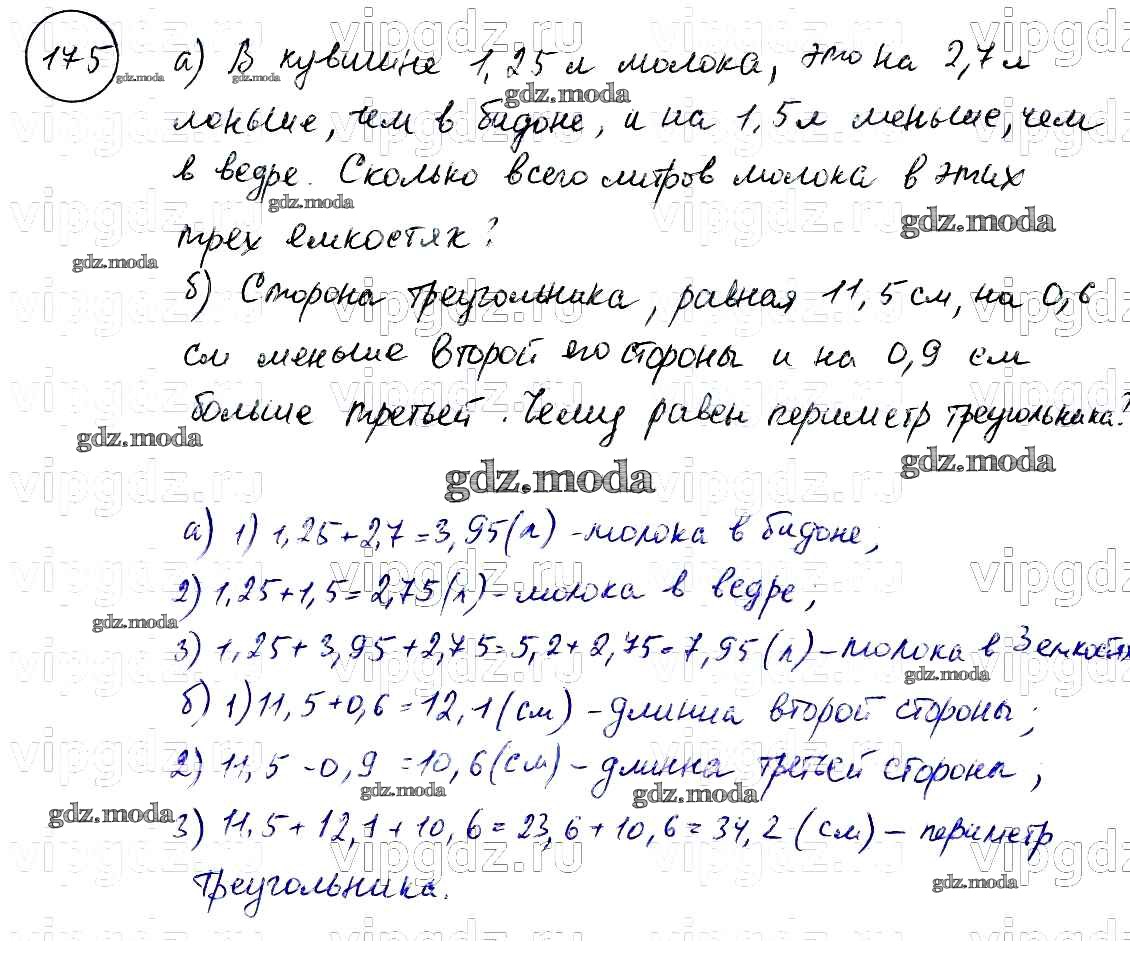 175 а) В кувшине 1,25 л молока, это на 2,7 л
меньше, чем в бидоне, и на 1,5 л меньше, чем
в ведре. Сколько всего литров молока в этих
трех емкостях?
б) Сторона треугольника, равная 11,5 см, на 0,6
см меньше второй его стороны и на 0,9 см
больше третьей. Чему равен периметр треугольника?
а) 1) 1,25+2,7=3,95(л) -молока в бидоне;
2) 1,25+1,5=2,75(л)- молока в ведре;
3) 1,25+3,95+2,75=5,2+2,75=7,95(л)-молока в 3 емкостях
б) 1) 11,5+0,6=12,1(см) -длинна второй стороны;
2) 11,5-0,9=10,6(см)-длинна третьей стороны;
3) 11,5+12,1+10,6=23,6+10,6=34,2(см)- периметр
треугольника.
vipgdz.ru
gdz.moda